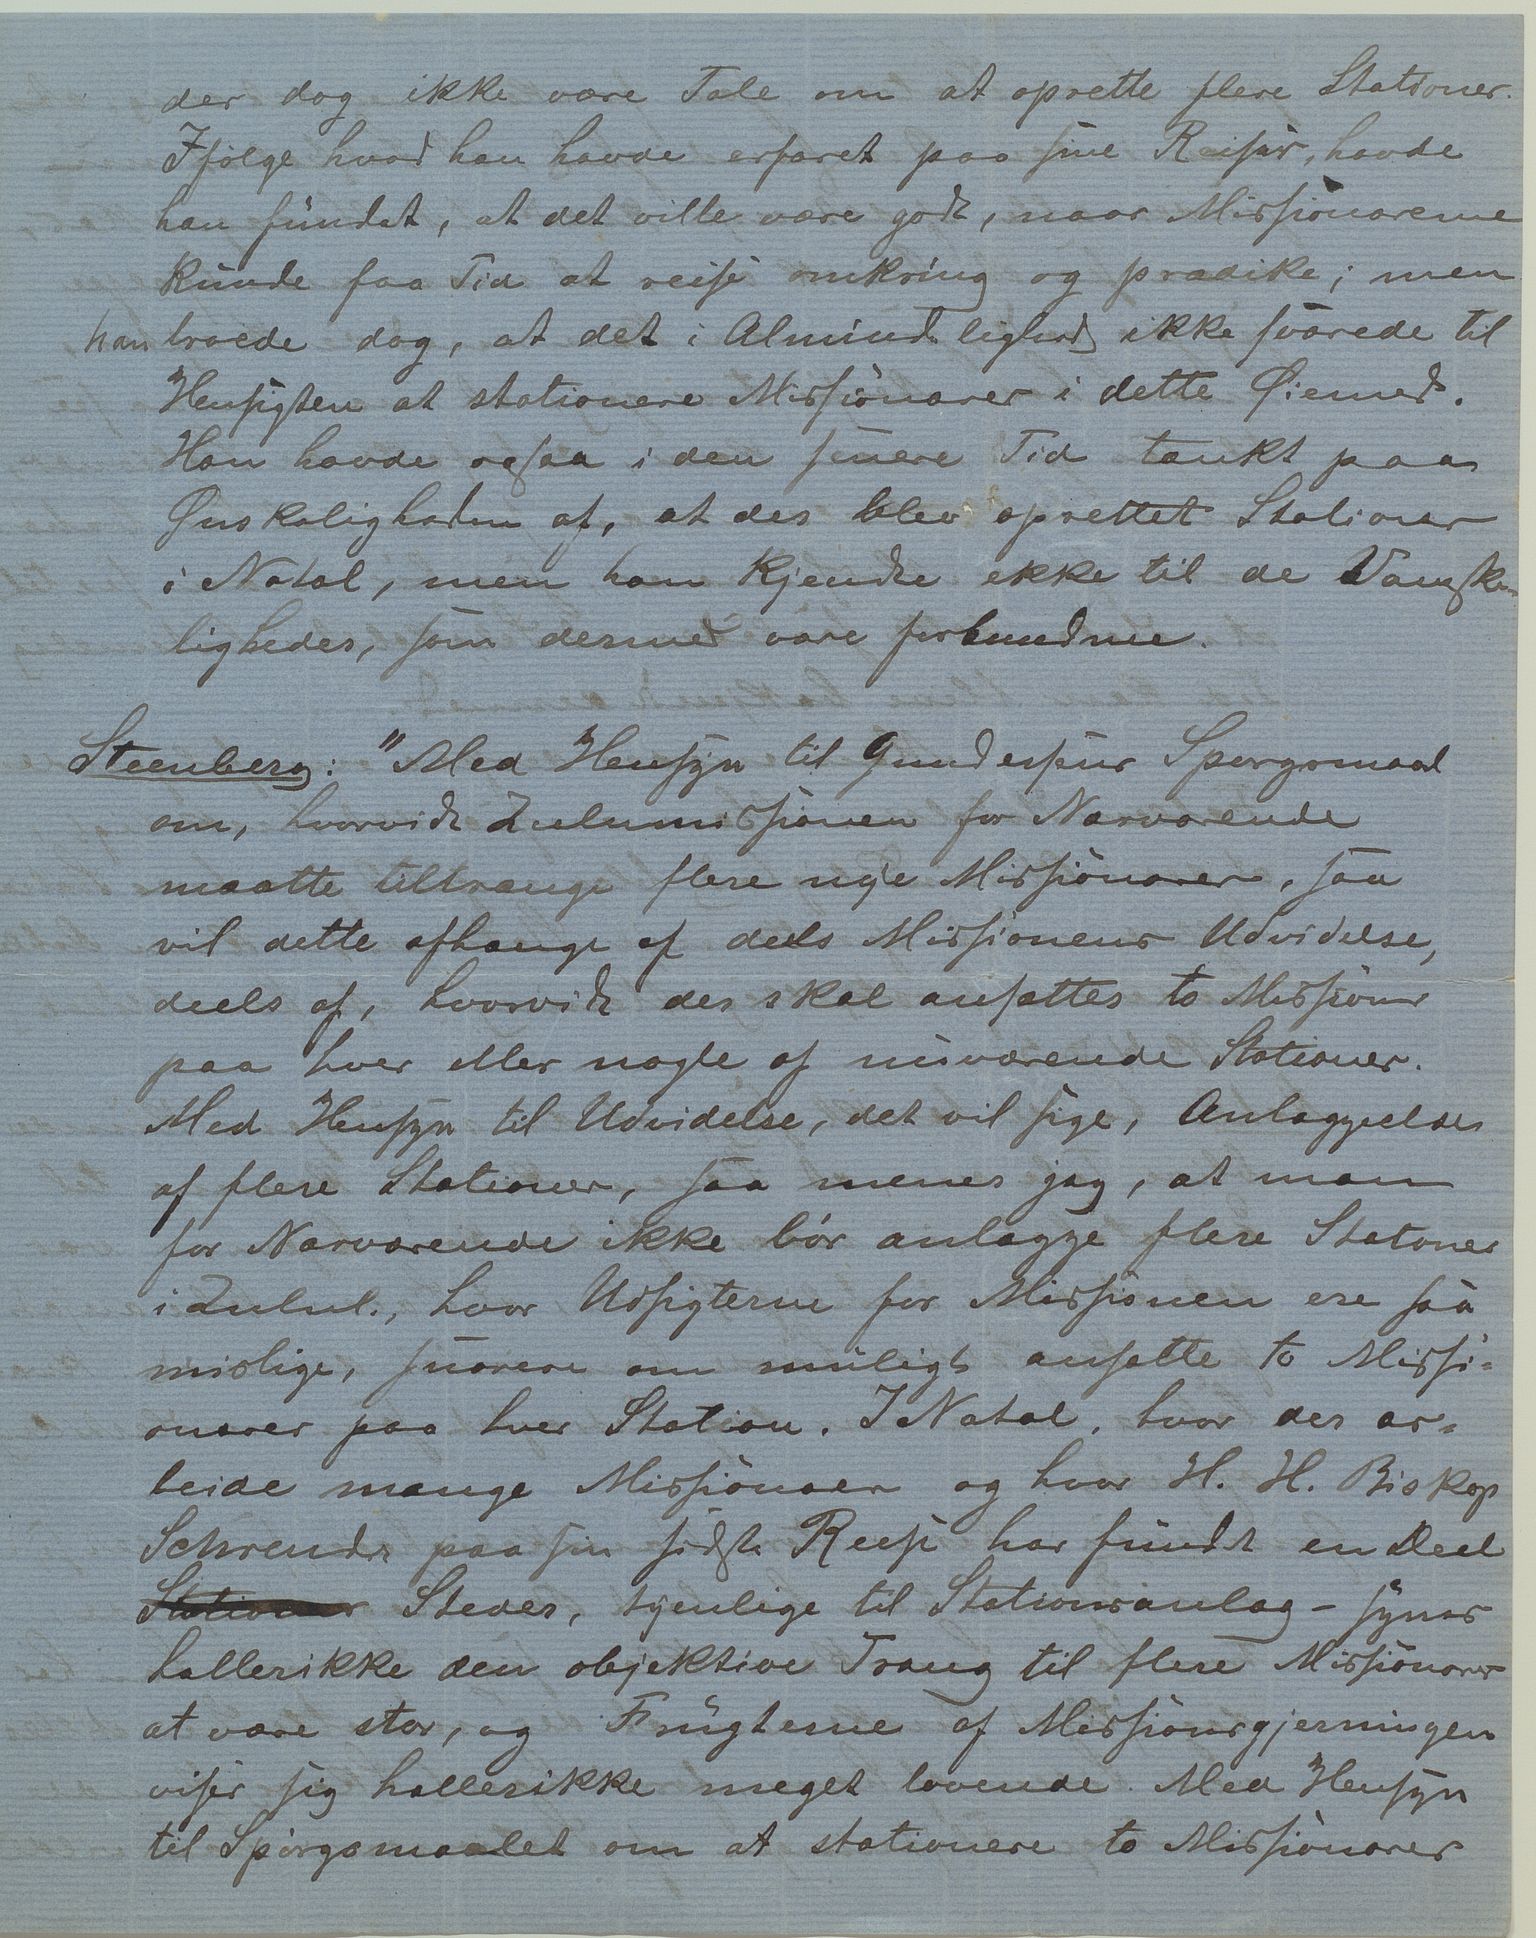 der dog ikke være Tale om at oprette flere Stationer.
Ifølge hvad han havde erfaret paa sine Reiser, havde
han fundet, at det ville være godt, naar Missionærerne
kunde faa Tid at reise omkring og prædike; men
han troede dog, at det i Almindelighed ikke svarede til
Hensigten at stationere Missionærer i dette Øiemed.
Han havde ogsaa i den senere Tid tænkt paa
Ønskeligheden af, at der blev oprettet Stationer
i Natal, men han kjendte ikke til de Vanske-
ligheder, som dermed vare forbundne.
Steenberg: "Med Hensyn til Gundersens Spørgsmaal
om, hvorvidt Zulumissionen for Nærværende
maatte tiltrænge flere nye Missionærer, saa
vil dette afhænge af deels Missionens Udvidelse,
deels af, hvorvidt der skal ansættes to Missionær
paa hver eller nogle af nuværende Stationer.
Med Hensyn til Udvidelse, det vil sige, Anlæggelse
af flere Stationer, saa mener jeg, at man
for Nærværende ikke bør anlægge flere Statoner
i Zulul., hvor Udsigterne for Missionen ere saa
mislige, snarere om muligt ansætte to Missi=
onærer paa hver Station. I Natal, hvor der ar=
beide mange Missionær og hvor H. H. Biskop
Schreuder paa sin sidste Reise har fundet en Deel
Stationer Steder, tjenlige til Stationsanlæg - synes
hellerikke den objektive Trang til flere Missionærer
at være stor, og Frugterne af Missionsgjerningen
viser sig hellerikke meget lovende. Med Hensyn
til Spørgsmaalet om at stationere to Missionærer